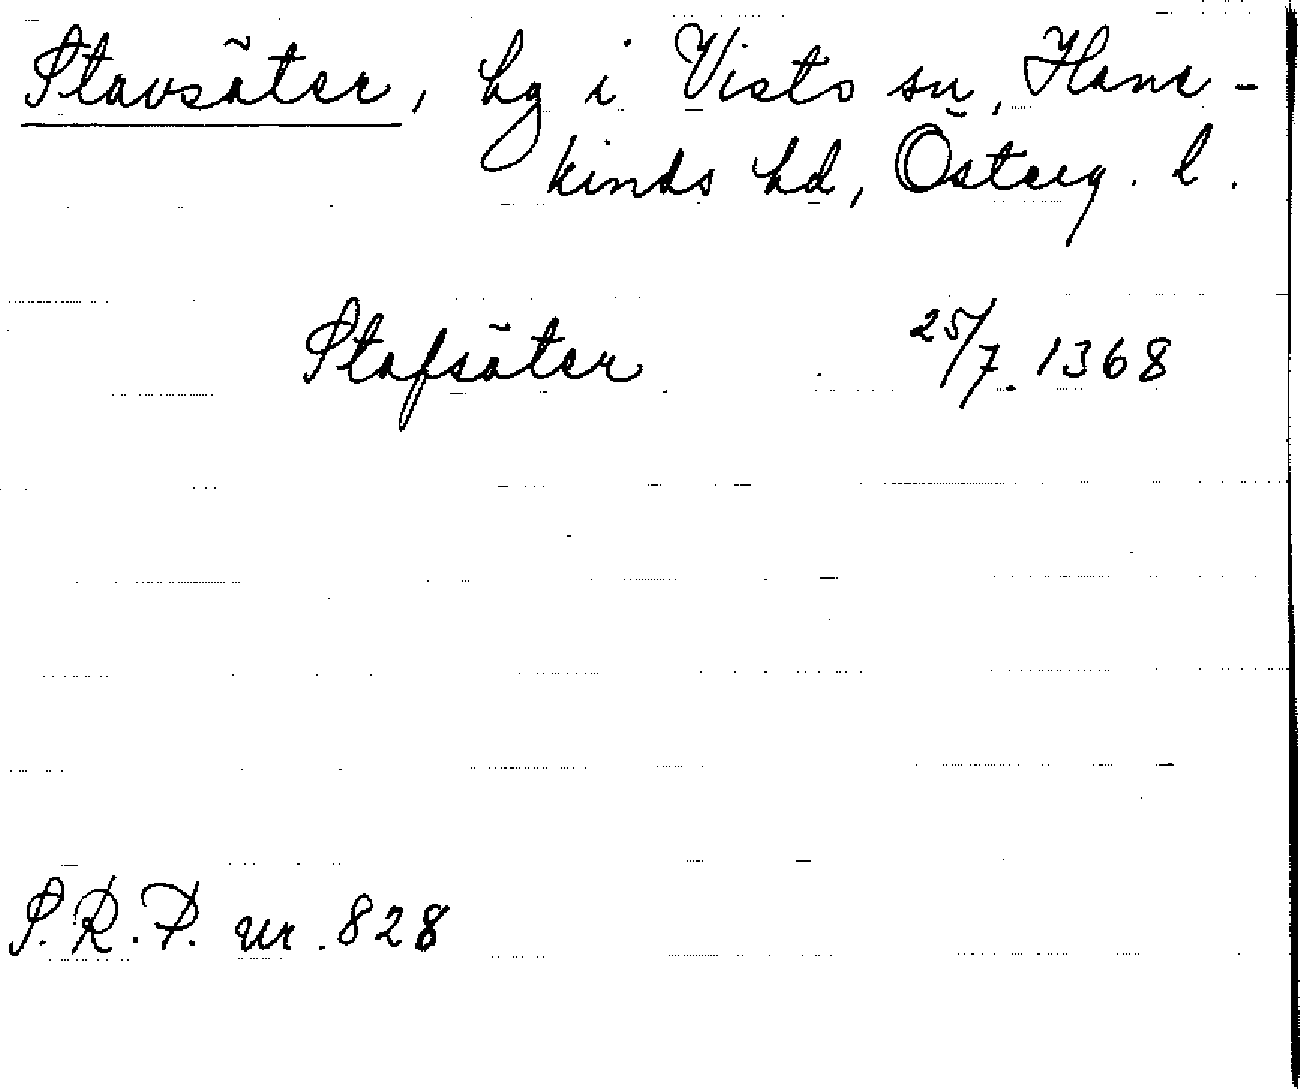 Stavsäter, hg i Visto sn, Hane-
kinds hd, Österg. l.
Stafsäter 25/7. 1368
S.R.P. nr. 828